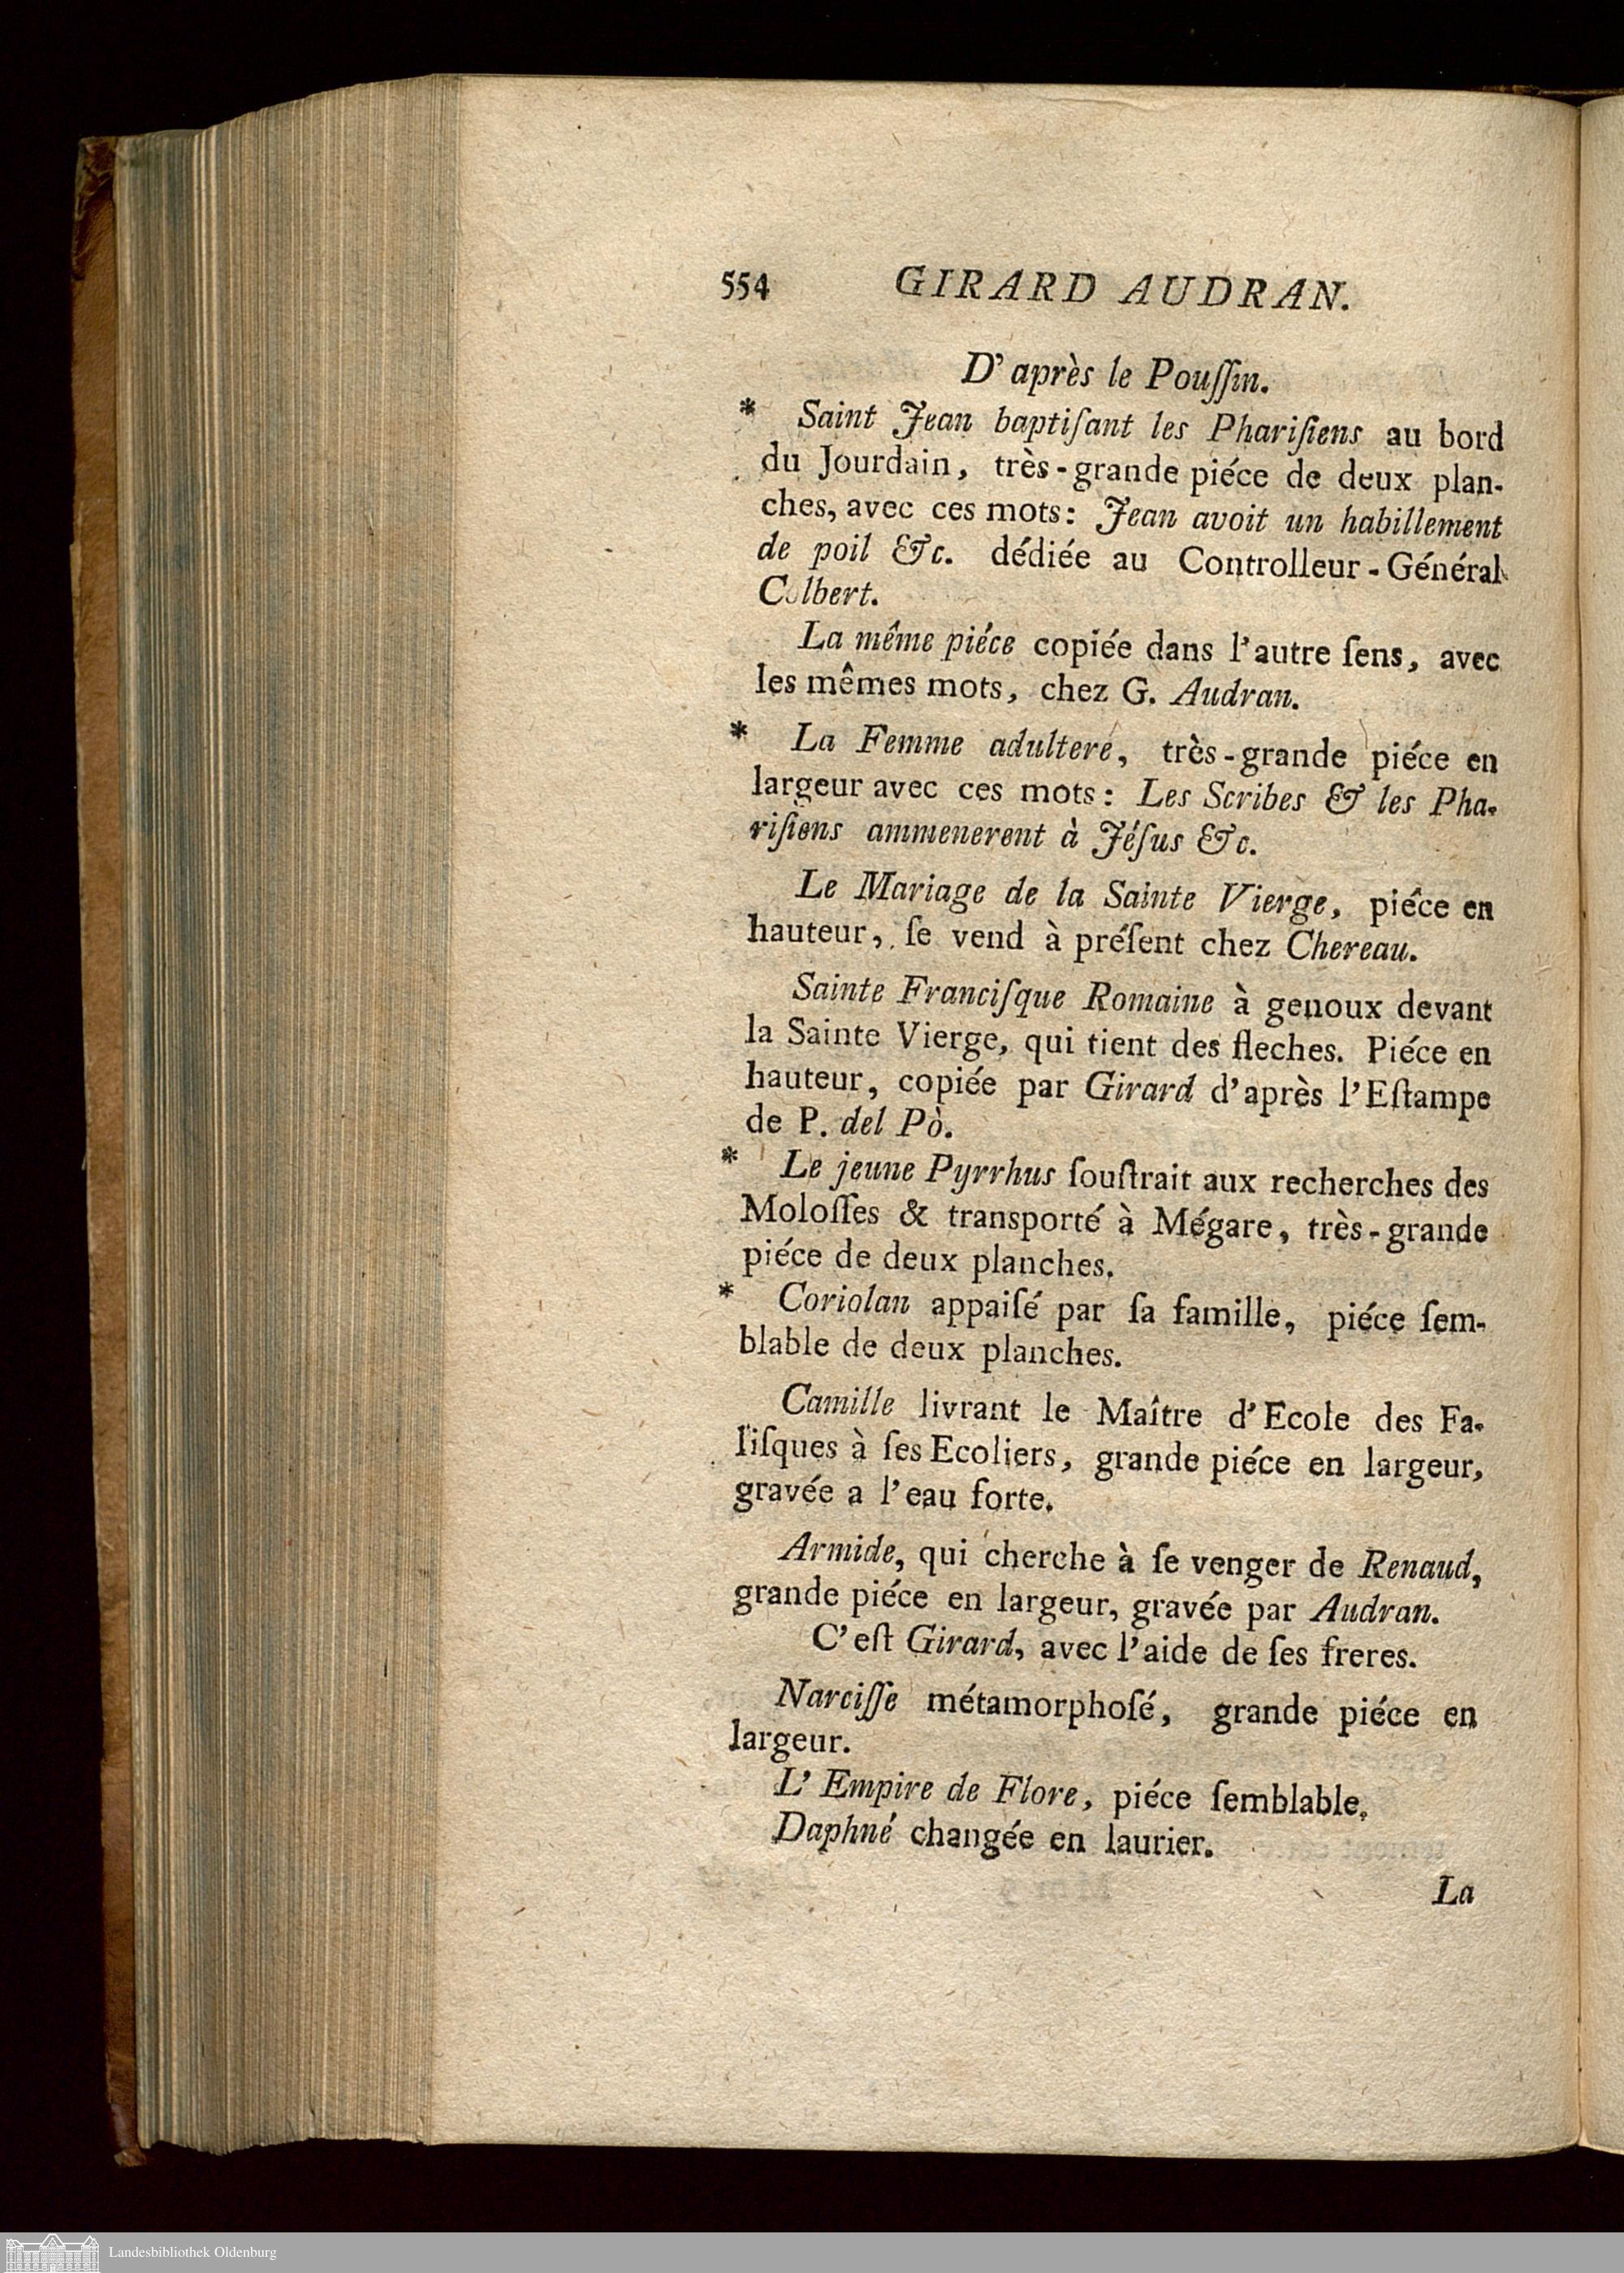 554 GIRARD AUDRAN.
D'après le Pouſſin.
* Saint Jean baptiſant les Phariſiens au bord
du Jourdain, très-grande piéce de deux plan-
ches, avec ces mots: Jean avoit un habillement
de poil &c. dédiée au Controlleur-Général
Colbert.
La même piéce copiée dans l'autre ſens, avec
les mêmes mots, chez G. Audran.
* La Femme adultere, très-grande piéce en
largeur avec ces mots: Les Scribes & les Pha-
riſiens ammenerent à Jéſus &c.
Le Mariage de la Sainte Vierge, piéce en
hauteur, ſe vend à préſent chez Chereau.
Sainte Franciſque Romaine à genoux devant
la Sainte Vierge, qui tient des fleches. Piéce en
hauteur, copiée par Girard d'après l'Eſtampe
de P. del Pò.
* Le jeune Pyrrhus ſouſtrait aux recherches des
Moloſſes & transporté à Mégare, très-grande
piéce de deux planches.
* Coriolan appaiſé par ſa famille, piéce ſem-
blable de deux planches.
Camille livrant le Maître d'Ecole des Fa-
liſques à ſes Ecoliers, grande piéce en largeur,
gravée a l'eau forte.
Armide, qui cherche à ſe venger de Renaud,
grande piéce en largeur, gravée par Audran.
C'eſt Girard, avec l'aide de ſes freres.
Narciſſe métamorphoſé, grande piéce en
largeur.
L'Empire de Flore, piéce ſemblable.
Daphné changée en laurier.
La
Landesbibliothek Oldenburg